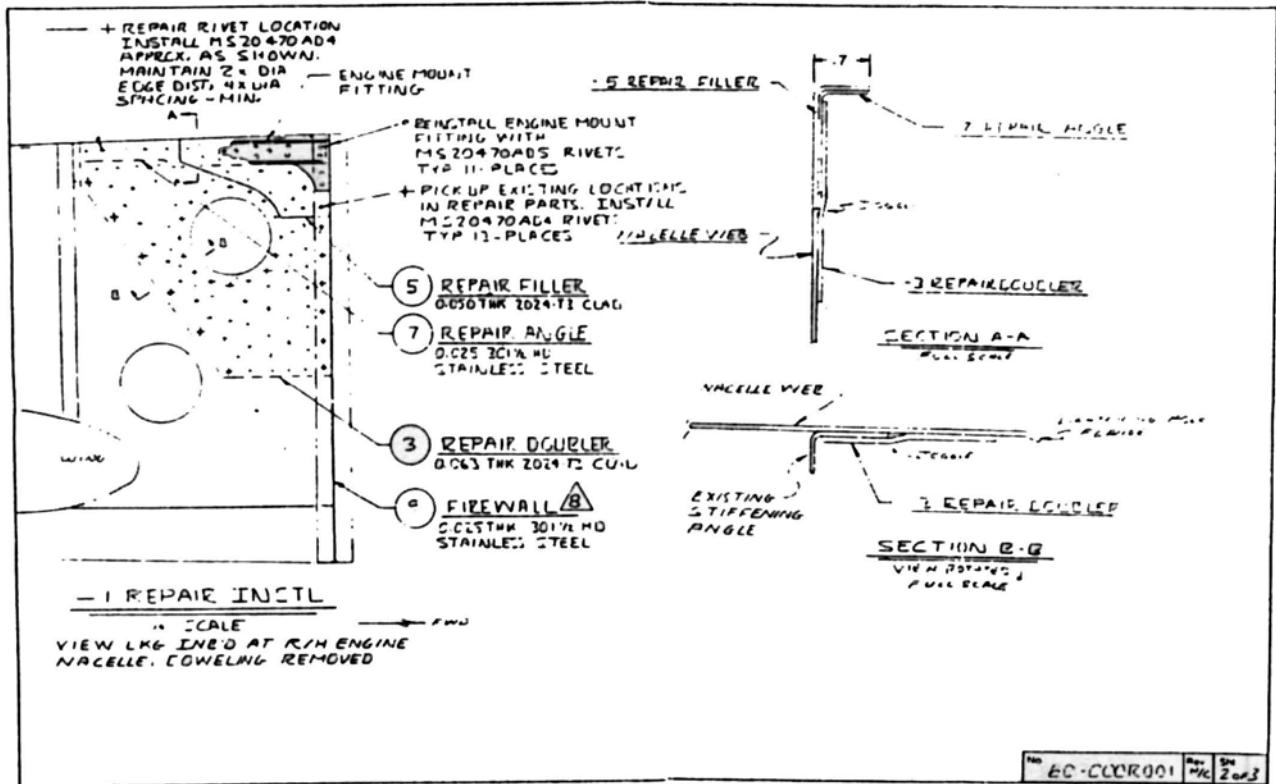 + REPAIR RIVET LOCATION
INSTALL MS20470AD4
APPRCX. AS SHOWN.
MAINTAIN 2x DIA
EDGE DIST, 4x DIA
SPACING - MIN.
A
ENGINE MOUNT
FITTING
REINSTALL ENGINE MOUNT
FITTING WITH
MS20470AD5 RIVETS
TYP 11-PLACES
+ PICK UP EXISTING LOCATIONS
IN REPAIR PARTS. INSTALL
MS20470AD4 RIVETS
TYP 13-PLACES
B
B
5 REPAIR FILLER
0.050 THK 2024-T3 CLAD
7 REPAIR ANGLE
0.025 301 ½ HD
STAINLESS STEEL
3 REPAIR DOUBLER
0.063 THK 2024-T3 CLAD
9 FIREWALL 8
0.025 THK 301 ½ HD
STAINLESS STEEL
WING
-1 REPAIR INSTL
SCALE
FWD
VIEW LKG INB'D AT R/H ENGINE
NACELLE. COWELING REMOVED
.7
-5 REPAIR FILLER
7 REPAIR ANGLE
JOGGLE
NACELLE WEB
-3 REPAIR DOUBLER
SECTION A-A
FULL SCALE
NACELLE WEB
LIGHTENING HOLE
FLANGE
JOGGLE
EXISTING
STIFFENING
ANGLE
REPAIR DOUBLER
SECTION B-B
VIEW ROTATED
FULL SCALE
No EO-COOR001 Rev N/C SH 2 of 3